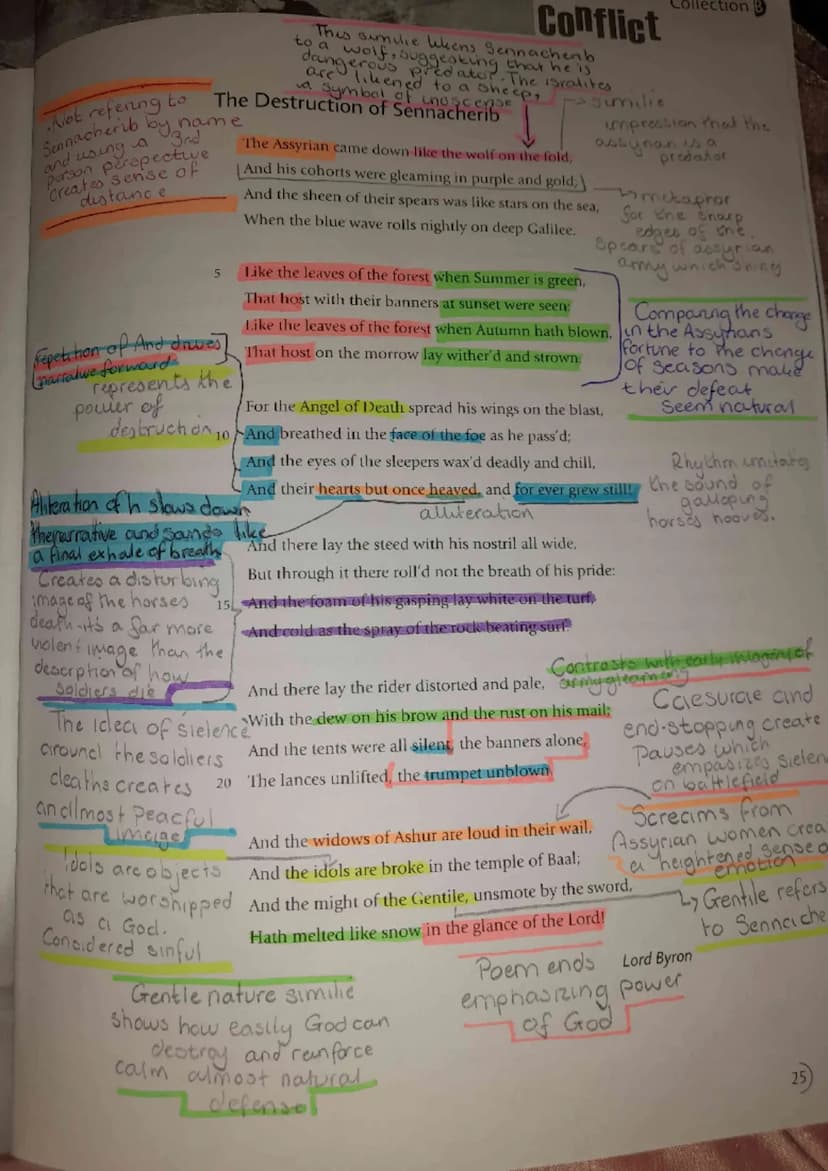 Collection B
Conflict
This similie likens Sennacherib
to a wolf, suggesting that he is
dangerous predator. The isralites
are likened to a sheep,
a symbol of inoscense
The Destruction of Sennacherib
. Not refering to
Sennacherib by name
and using a 3rd
person perspective
creates sense of
distance
similie
impression that the
assyrian is a
predator
The Assyrian came down like the wolf on the fold,
And his cohorts were gleaming in purple and gold,
And the sheen of their spears was like stars on the sea,
When the blue wave rolls nightly on deep Galilee.
metaphor
for the sharp
edges of the
spears of assyrian
army which shiny
5 Like the leaves of the forest when Summer is green,
That host with their banners at sunset were seen:
Like the leaves of the forest when Autumn hath blown,
That host on the morrow lay wither'd and strown.
Comparing the change
in the Assyrians
fortune to the change
of seasons make
their defeat
seem natural
repetition of And drives
narrative forward
represents the
power of
destruction
For the Angel of Death spread his wings on the blast,
10 And breathed in the face of the foe as he pass'd;
And the eyes of the sleepers wax'd deadly and chill,
And their hearts but once heaved, and for ever grew still!
alliteration
Rhythm imitates
the sound of
galloping
horses hooves.
Aliteration of h slows down
the narrative and sounds like
a final exhale of breath
And there lay the steed with his nostril all wide,
But through it there roll'd not the breath of his pride:
15 And the foam of his gasping lay white on the turf,
And cold as the spray of the rock beating surf.
Creates a disturbing
image of the horses
death-it's a far more
violent image than the
descrption of how
soldiers die
Contrasts with early imagery of
army gleaming
And there lay the rider distorted and pale,
With the dew on his brow and the rust on his mail;
And the tents were all silent, the banners alone,
20 The lances unlifted, the trumpet unblown.
The idea of sielence
around the soldiers
deaths creates
an allmost peacful
image
Caesurae and
end-stopping create
Pauses which
empasizes sielen
on battlefield
And the widows of Ashur are loud in their wail,
And the idols are broke in the temple of Baal;
And the might of the Gentile, unsmote by the sword,
Hath melted like snow in the glance of the Lord!
Lord Byron
Screams from
Assyrian women crea
a heightened sense o
emotion
Gentile refers
to Sennache
Idols are objects
that are worshipped
as a God.
Considered sinful
Gentle nature similie
shows how easily God can
destroy and reinforce
calm almost natural
defense
Poem ends
emphasizing power
of God
25